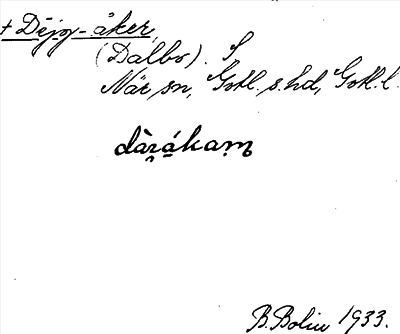 + Dejg-åker,
(Dalbo). S,
När sn, Gotl. s. hd, Gotl. l.
dàrákam
B. Bolin 1933.